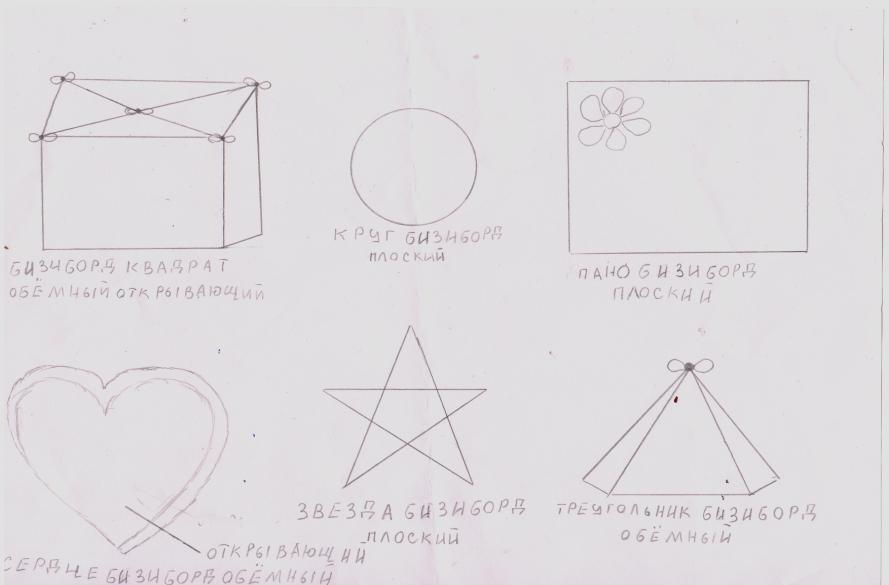 БИЗИБОРД КВАДРАТ
ОБЁМНЫЙ ОТКРЫВАЮЩИЙ
КРУГ БИЗИБОРД
ПЛОСКИЙ
ПАНО БИЗИБОРД
ПЛОСКИЙ
ОТКРЫВАЮЩИЙ
СЕРДЦЕ БИЗИБОРД ОБЁМНЫЙ
ЗВЕЗДА БИЗИБОРД
ПЛОСКИЙ
ТРЕУГОЛЬНИК БИЗИБОРД
ОБЁМНЫЙ